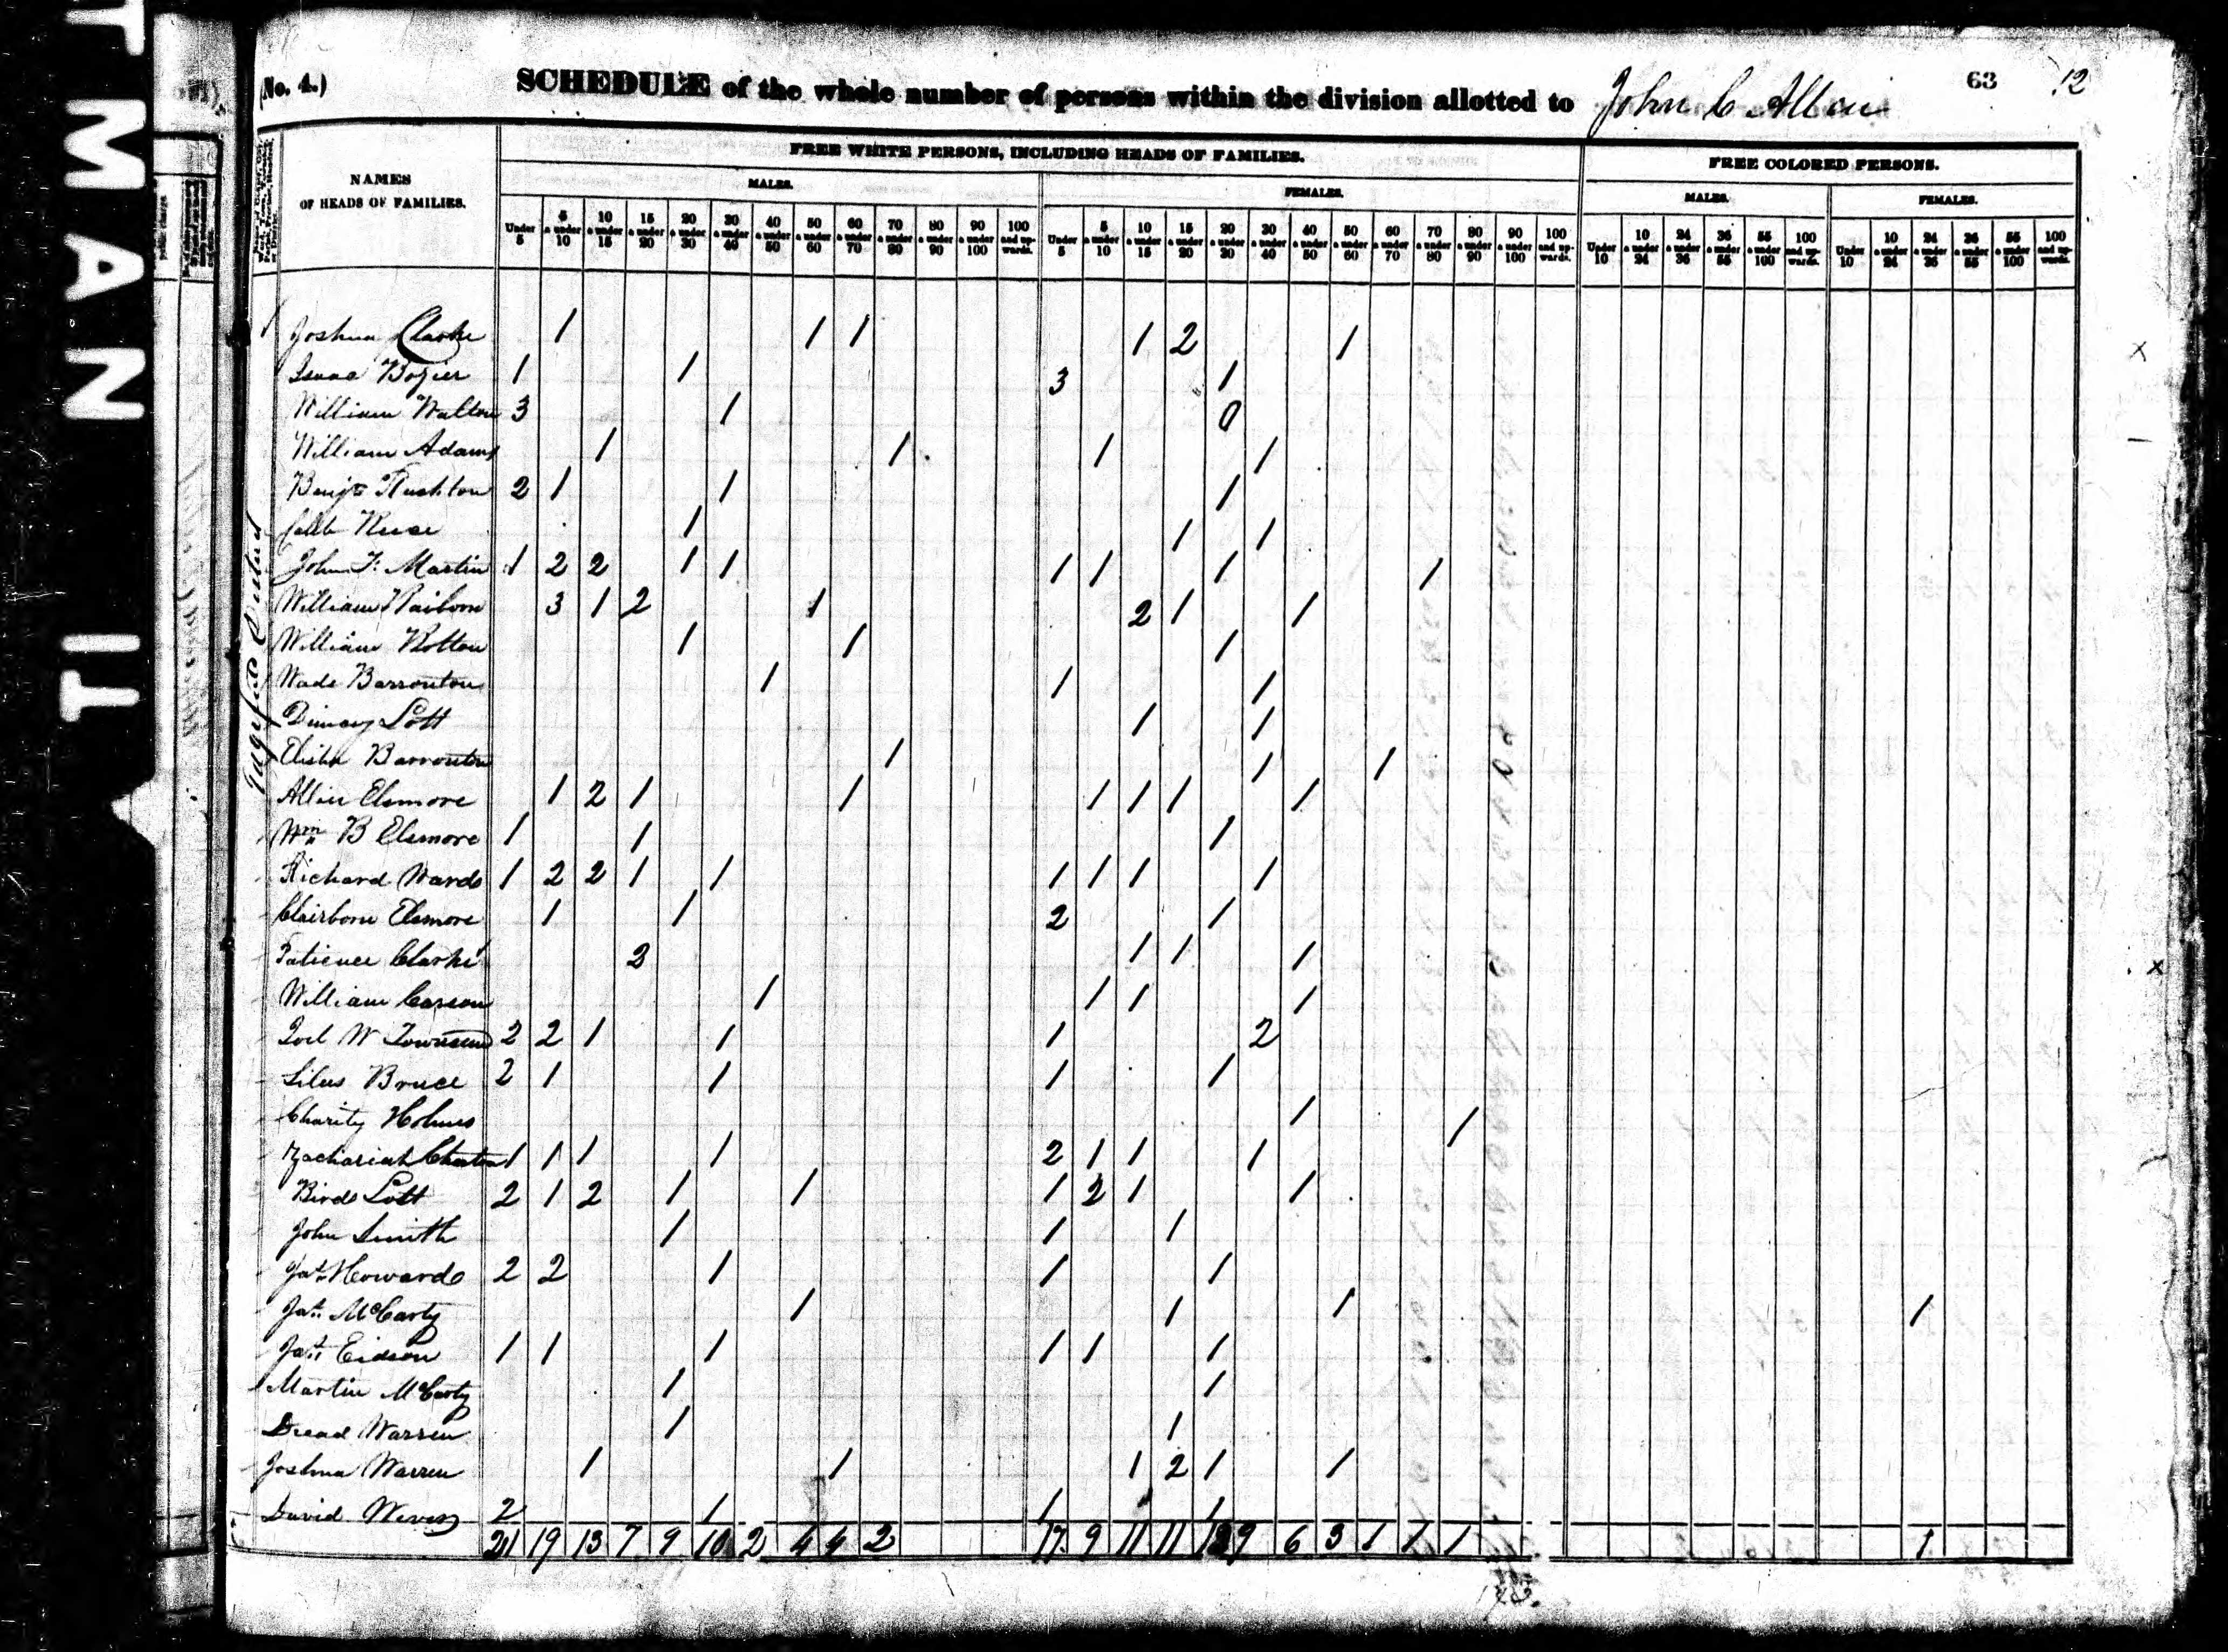 TMAN IT
(No. 4.) SCHEDULE of the whole number of persons within the division allotted to John C Allen 63 12
FREE WHITE PERSONS, INCLUDING HEADS OF FAMILIES. FREE COLORED PERSONS.
NAMES OF HEADS OF FAMILIES. MALES. FEMALES. MALES. FEMALES.
Under 5 | 5 & under 10 | 10 & under 15 | 15 & under 20 | 20 & under 30 | 30 & under 40 | 40 & under 50 | 50 & under 60 | 60 & under 70 | 70 & under 80 | 80 & under 90 | 90 & under 100 | 100 and upwards. | Under 5 | 5 & under 10 | 10 & under 15 | 15 & under 20 | 20 & under 30 | 30 & under 40 | 40 & under 50 | 50 & under 60 | 60 & under 70 | 70 & under 80 | 80 & under 90 | 90 & under 100 | 100 and upwards. | Under 10 | 10 & under 24 | 24 & under 36 | 36 & under 55 | 55 & under 100 | 100 and upwards. | Under 10 | 10 & under 24 | 24 & under 36 | 36 & under 55 | 55 & under 100 | 100 and upwards.
Joshua Clarke 1 1 1 1 2 1
Isaac Bozier 1 1 3 1
William Walton 3 1 0
William Adams 1 1 1 1
Benjn Rushton 2 1 1 1
Caleb 1 1 1
John F. Martin 1 2 2 1 1 1 1 1 1
William 3 1 2 1 2 1 1
William Botton 1 1 1
Wade Barronton 1 1 1
Lott 1 1
Elisha Barronton 1 1 1
Allen Elsmore 1 2 1 1 1 1 1 1
Wm B Elsmore 1 1 1
Richard Wards 1 2 2 1 1 1 1 1 1
Clairborn Elsmore 1 1 2 1
Patience Clarke 2 1 1 1
William Carson 1 1 1 1
Joel W Townsend 2 2 1 1 1 2
Silas Bruce 2 1 1 1 1
Charity Holmes 1 1
Zachariah 1 1 1 1 2 1 1 1
Birds Lott 2 1 2 1 1 1 2 1 1
John Smith 1 1 1
Jas Howards 2 2 1 1 1
Jas McCarty 1 1 1 1
Jas Eidson 1 1 1 1 1 1
Martin McCarty 1 1
Dread Warren 1 1
Joshua Warren 1 1 1 2 1 1
David 2 1 1 1
21 19 13 7 9 10 2 4 4 2 17 9 11 11 9 6 3 1 1 1 1